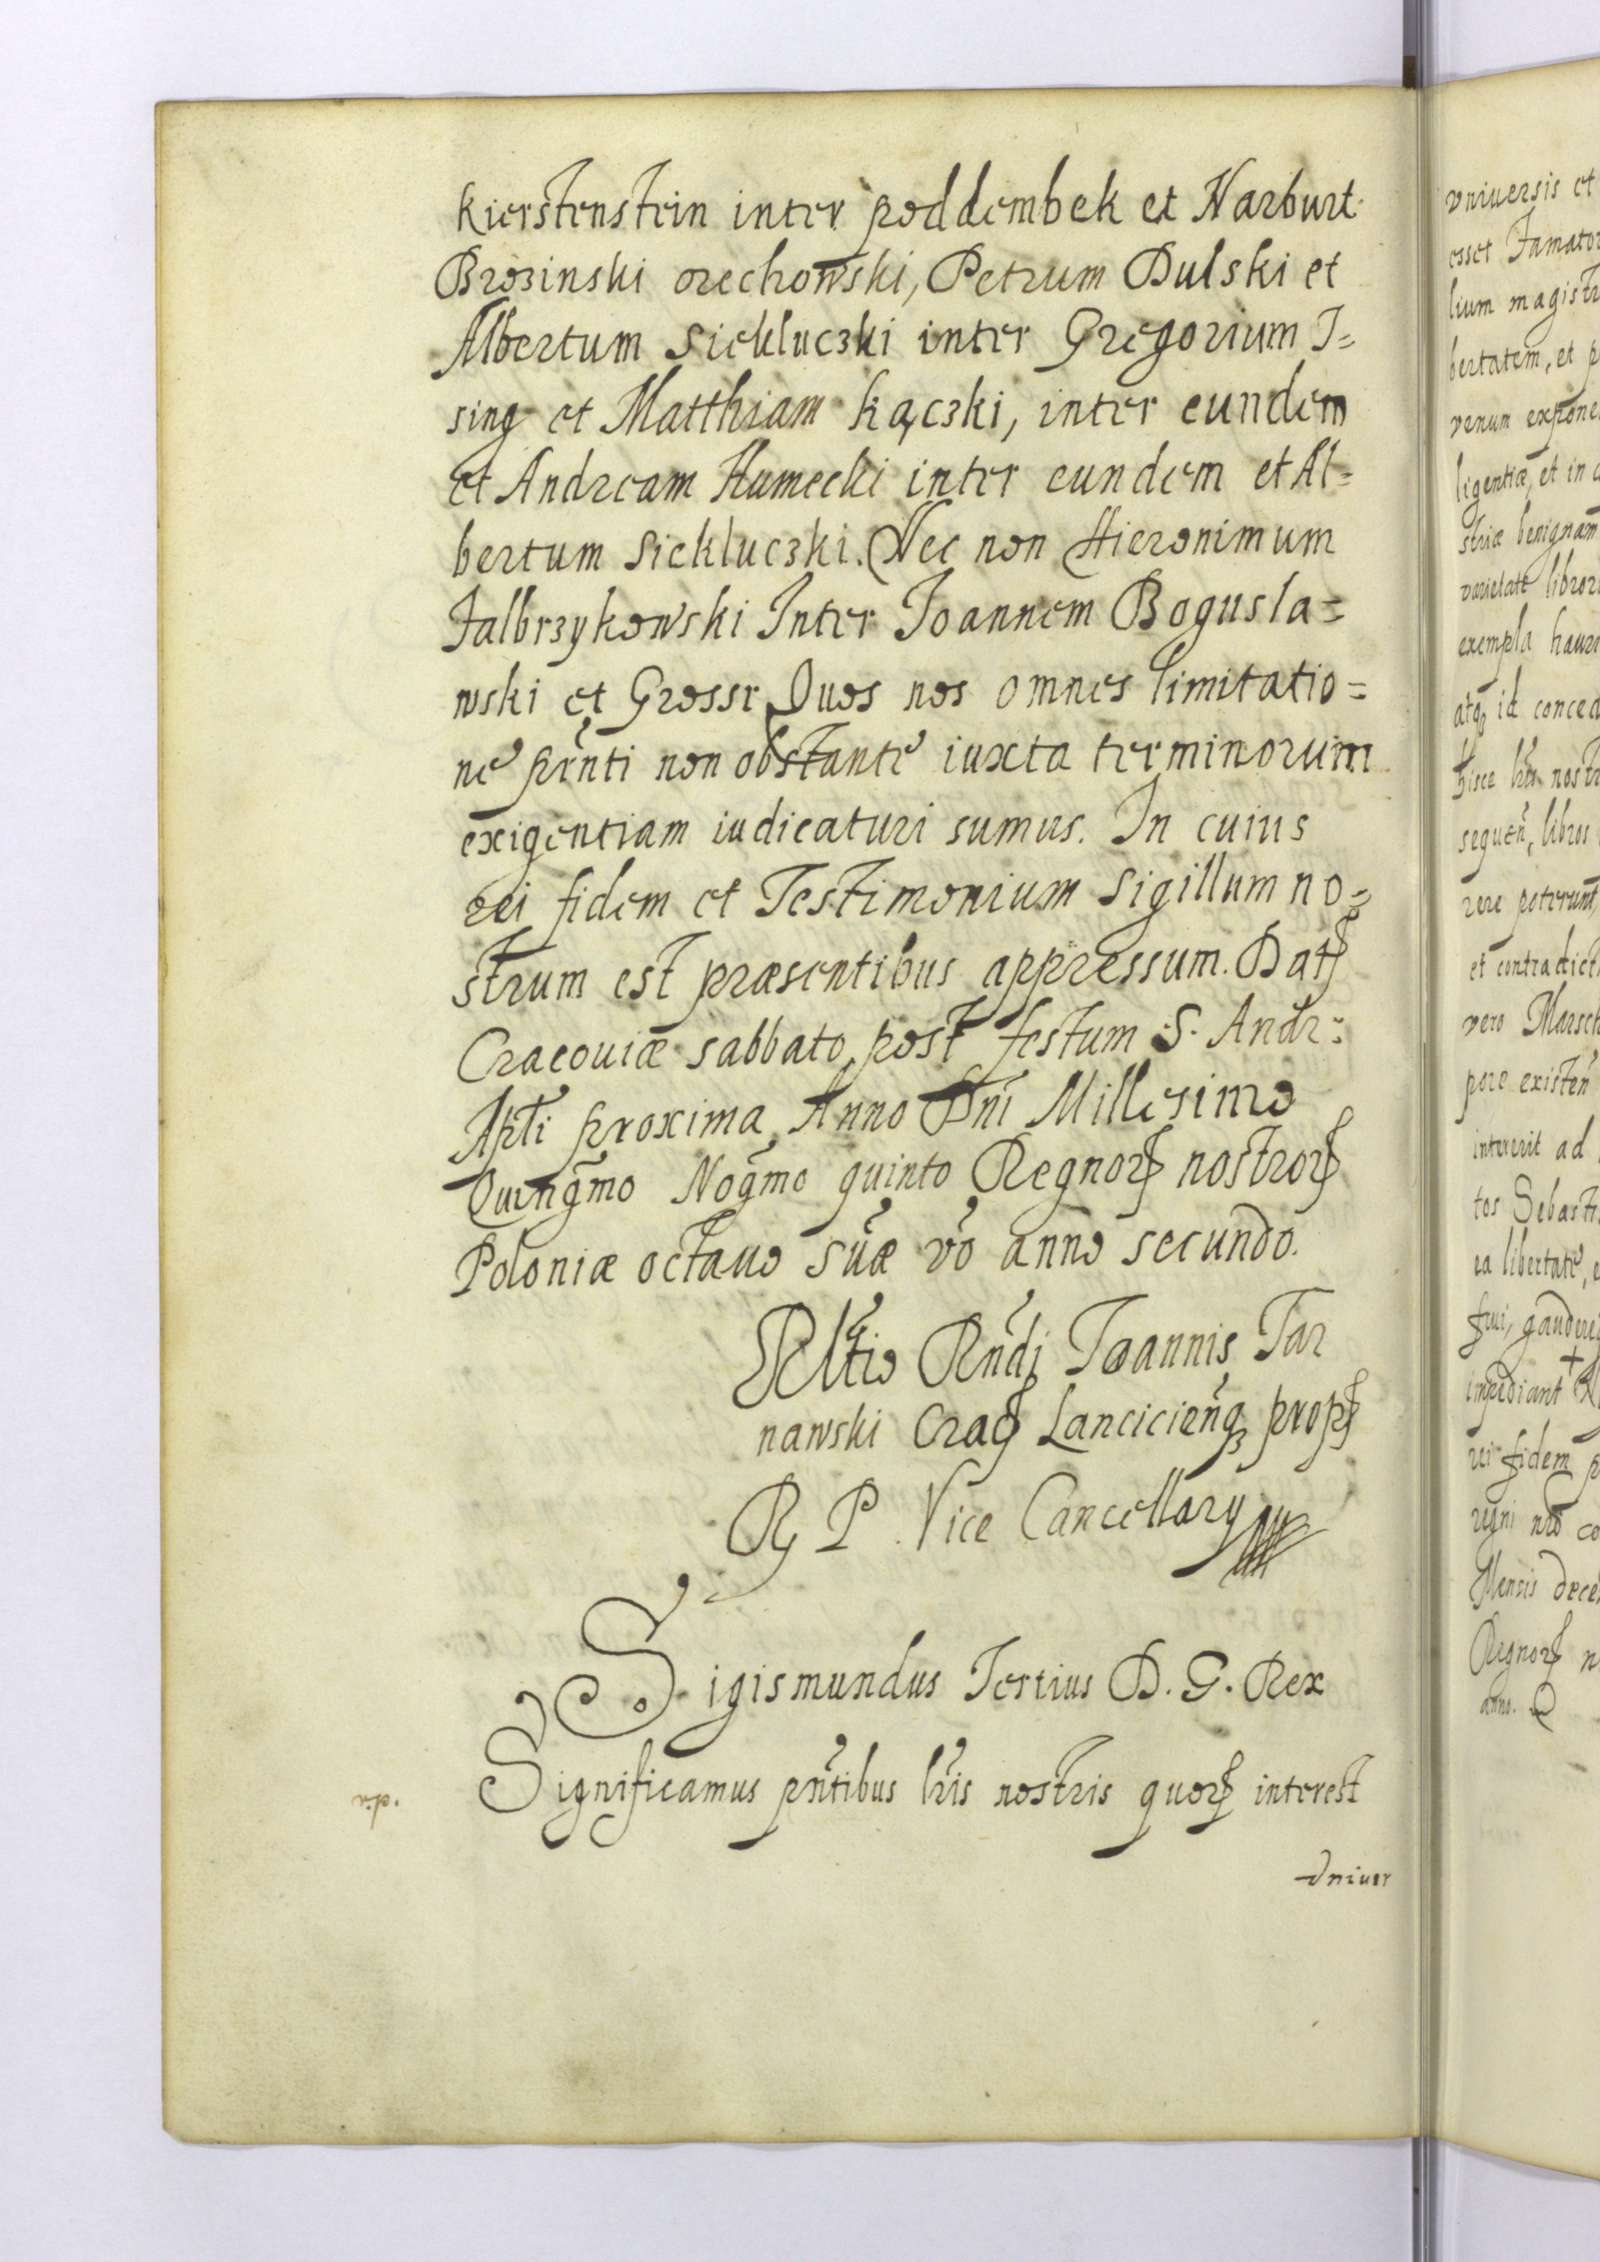 kierstenstein inter poddembek et Harburt
Brozinski orechowski, Petrum Dulski et
Albertum Siekluczki inter Gregorium I=
sing et Matthiam kączki, inter eundem
et Andream Humecki inter eundem et Al=
bertum Siekluczki. Nec non Hieronimum
Jalbrzykowski Inter Joannem Bogusla=
wski et Grossr Quos nos omnes limitatio=
ne prnti non obstante iuxta terminorum
exigentiam iudicaturi sumus. In cuius
rei fidem et Testimonium Sigillum no=
strum est præsentibus appressum. Dat
Cracoviæ sabbato post festum S. Andr:
Apti proxima Anno Dni Millesimo
Quingmo Nogmo quinto Regnor nostror
Poloniæ octavo Suæ vo anno secundo.
Rltio Rndi Joannis Tar
nawski Crac Lancicienq prop
R P Vice Cancellary
Sigismundus Tertius D. G. Rex
Significamus prntibus lris nostris quor interest
Vniver
vniversis et
esset Famator
lium magistr
bertatem, et p
venum expone
ligentiæ, et in
striæ benignam
varietate libror
exempla haur
atq id conced
hisce lris nostr
sequen, libros
rere poterunt,
et contradict
vero Marsch
pore existen
intererit ad
tos Sebast
ea libertate,
frui, gaudere
impediant
rei fidem p
regni nro co
Mensis dece
Regnor n
anno.